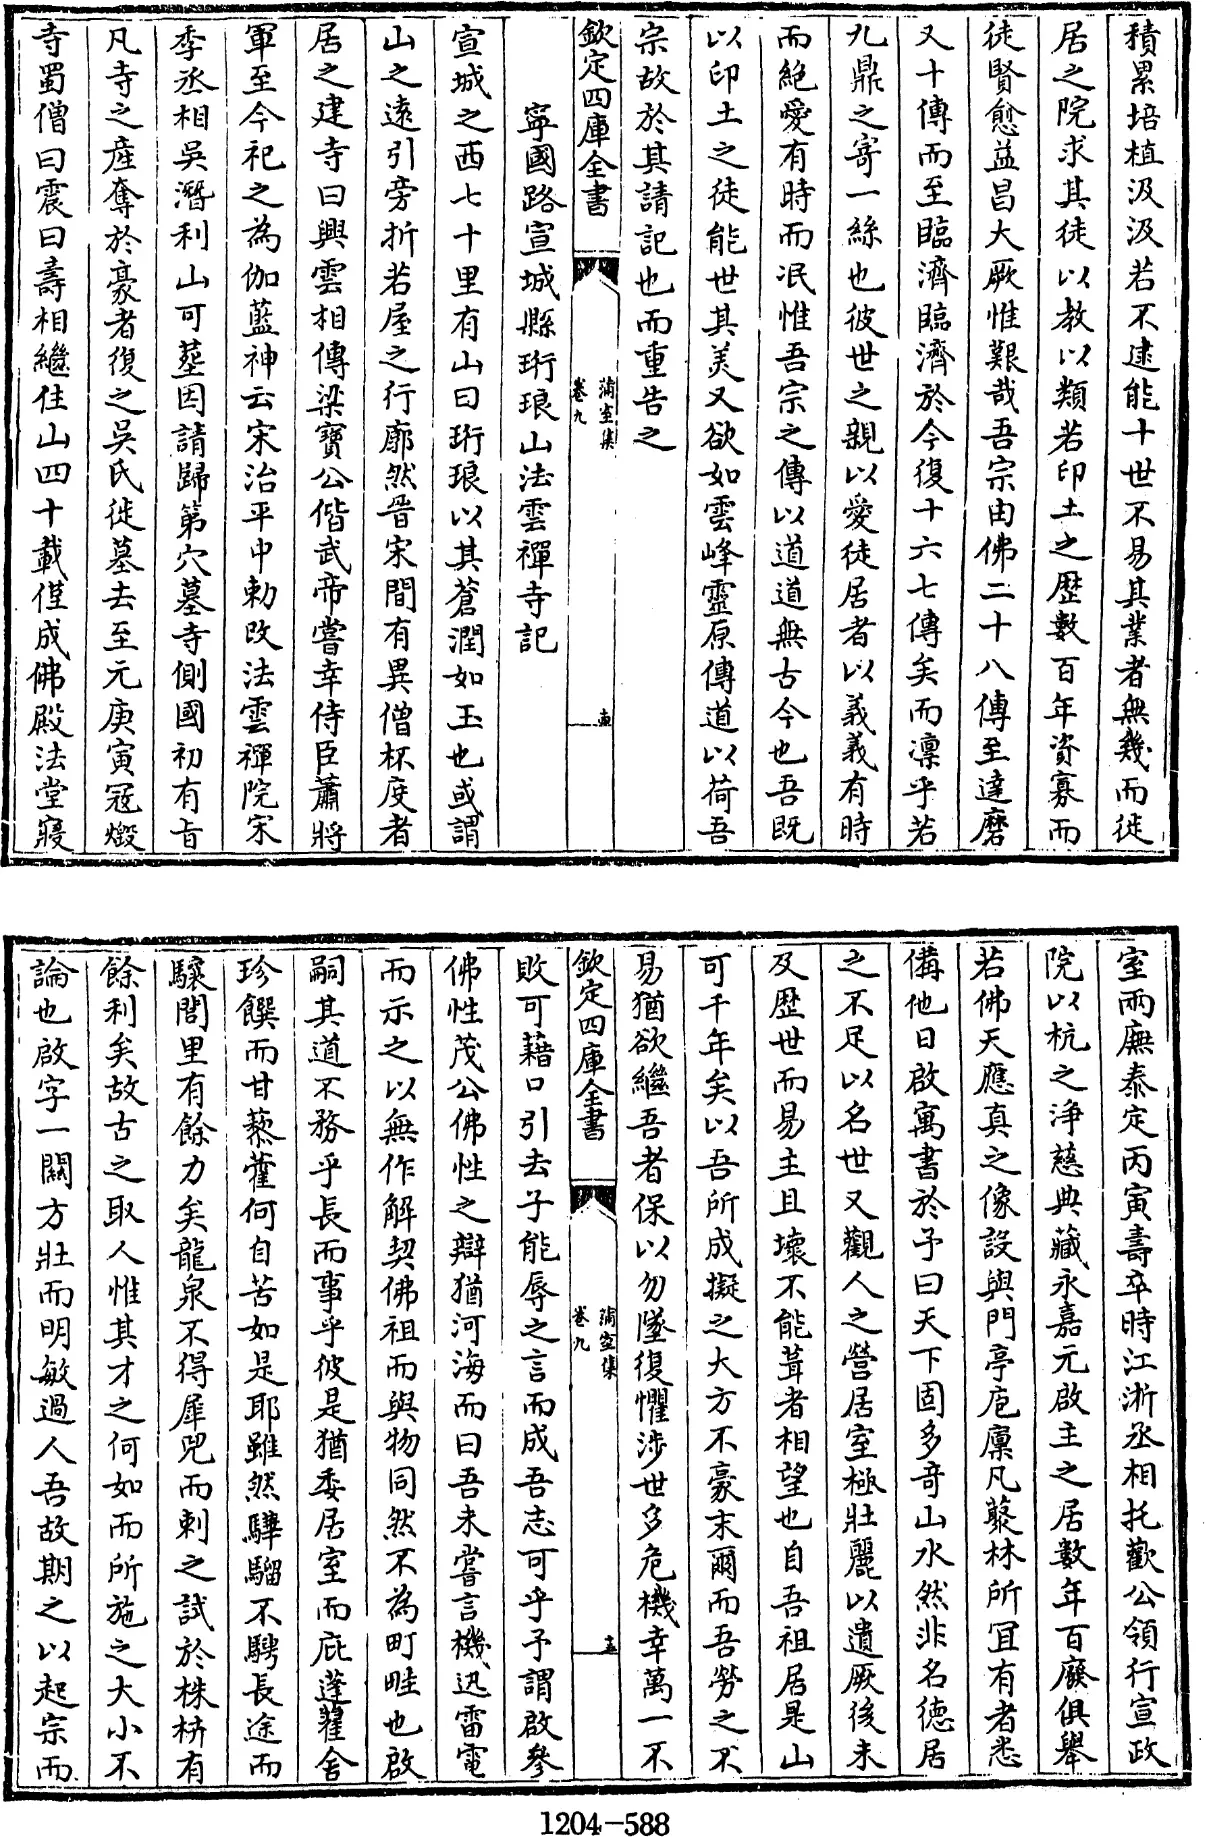 積累培植汲汲若不逮能十世不易其業者無幾而徒
居之院求其徒以教以類若印土之歴數百年資寡而
徒賢愈益昌大厥惟艱哉吾宗由佛二十八傳至達磨
又十傳而至臨濟臨濟於今復十六七傳矣而凜乎若
九鼎之寄一絲也彼世之親以愛徒居者以義義有時
而絶愛有時而泯惟吾宗之傳以道道無古今也吾既
以印土之徒能世其美又欲如雲峰靈原傳道以荷吾
宗故於其請記也而重告之
欽定四庫全書
蒲室集
卷九
寧國路宣城縣珩琅山法雲禪寺記
宣城之西七十里有山曰珩琅以其蒼潤如玉也或謂
山之遠引旁折若屋之行廊然晉宋間有異僧杯度者
居之建寺曰興雲相傳梁寶公偕武帝嘗幸侍臣蕭將
軍至今祀之為伽藍神云宋治平中勅改法雲禪院宋
季丞相吳潛利山可塟因請歸第穴墓寺側國初有旨
凡寺之產奪於豪者復之吳氏徙墓去至元庚寅冦燬
寺蜀僧曰震曰壽相繼住山四十載僅成佛殿法堂寢
室兩廡泰定丙寅壽卒時江淅丞相托歡公領行宣政
院以杭之淨慈典藏永嘉元啟主之居數年百廢俱舉
若佛天應真之像設與門亭庖廩凡藂林所宜有者悉
備他日啟寓書於予曰天下固多竒山水然非名徳居
之不足以名世又觀人之營居室極壯麗以遺厥後未
及歴世而易主且壞不能葺者相望也自吾祖居是山
可千年矣以吾所成擬之大方不豪末爾而吾勞之不
易猶欲繼吾者保以勿墜復懼渉世多危機幸萬一不
欽定四庫全書
蒲室集
卷九
敗可藉口引去子能辱之言而成吾志可乎予謂啟參
佛性茂公佛性之辯猶河海而曰吾未嘗言機迅雷電
而示之以無作解契佛祖而與物同然不為町畦也啟
嗣其道不務乎長而事乎彼是猶委居室而庇蓬藋舍
珍饌而甘藜藿何自苦如是耶雖然驊騮不騁長途而
驤閭里有餘力矣龍泉不得犀兕而剌之試於株枿有
餘利矣故古之取人惟其才之何如而所施之大小不
論也啟字一闗方壯而明敏過人吾故期之以起宗而
1204-588